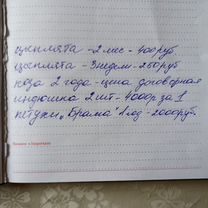 цыплята - 2 мес - 400 руб
цыплята - 3 недели - 250 руб
коза 2 года - цена договорная
индюшка 2 шт - 4000р за 1
петухи "Брама" 1 год - 2000 руб.